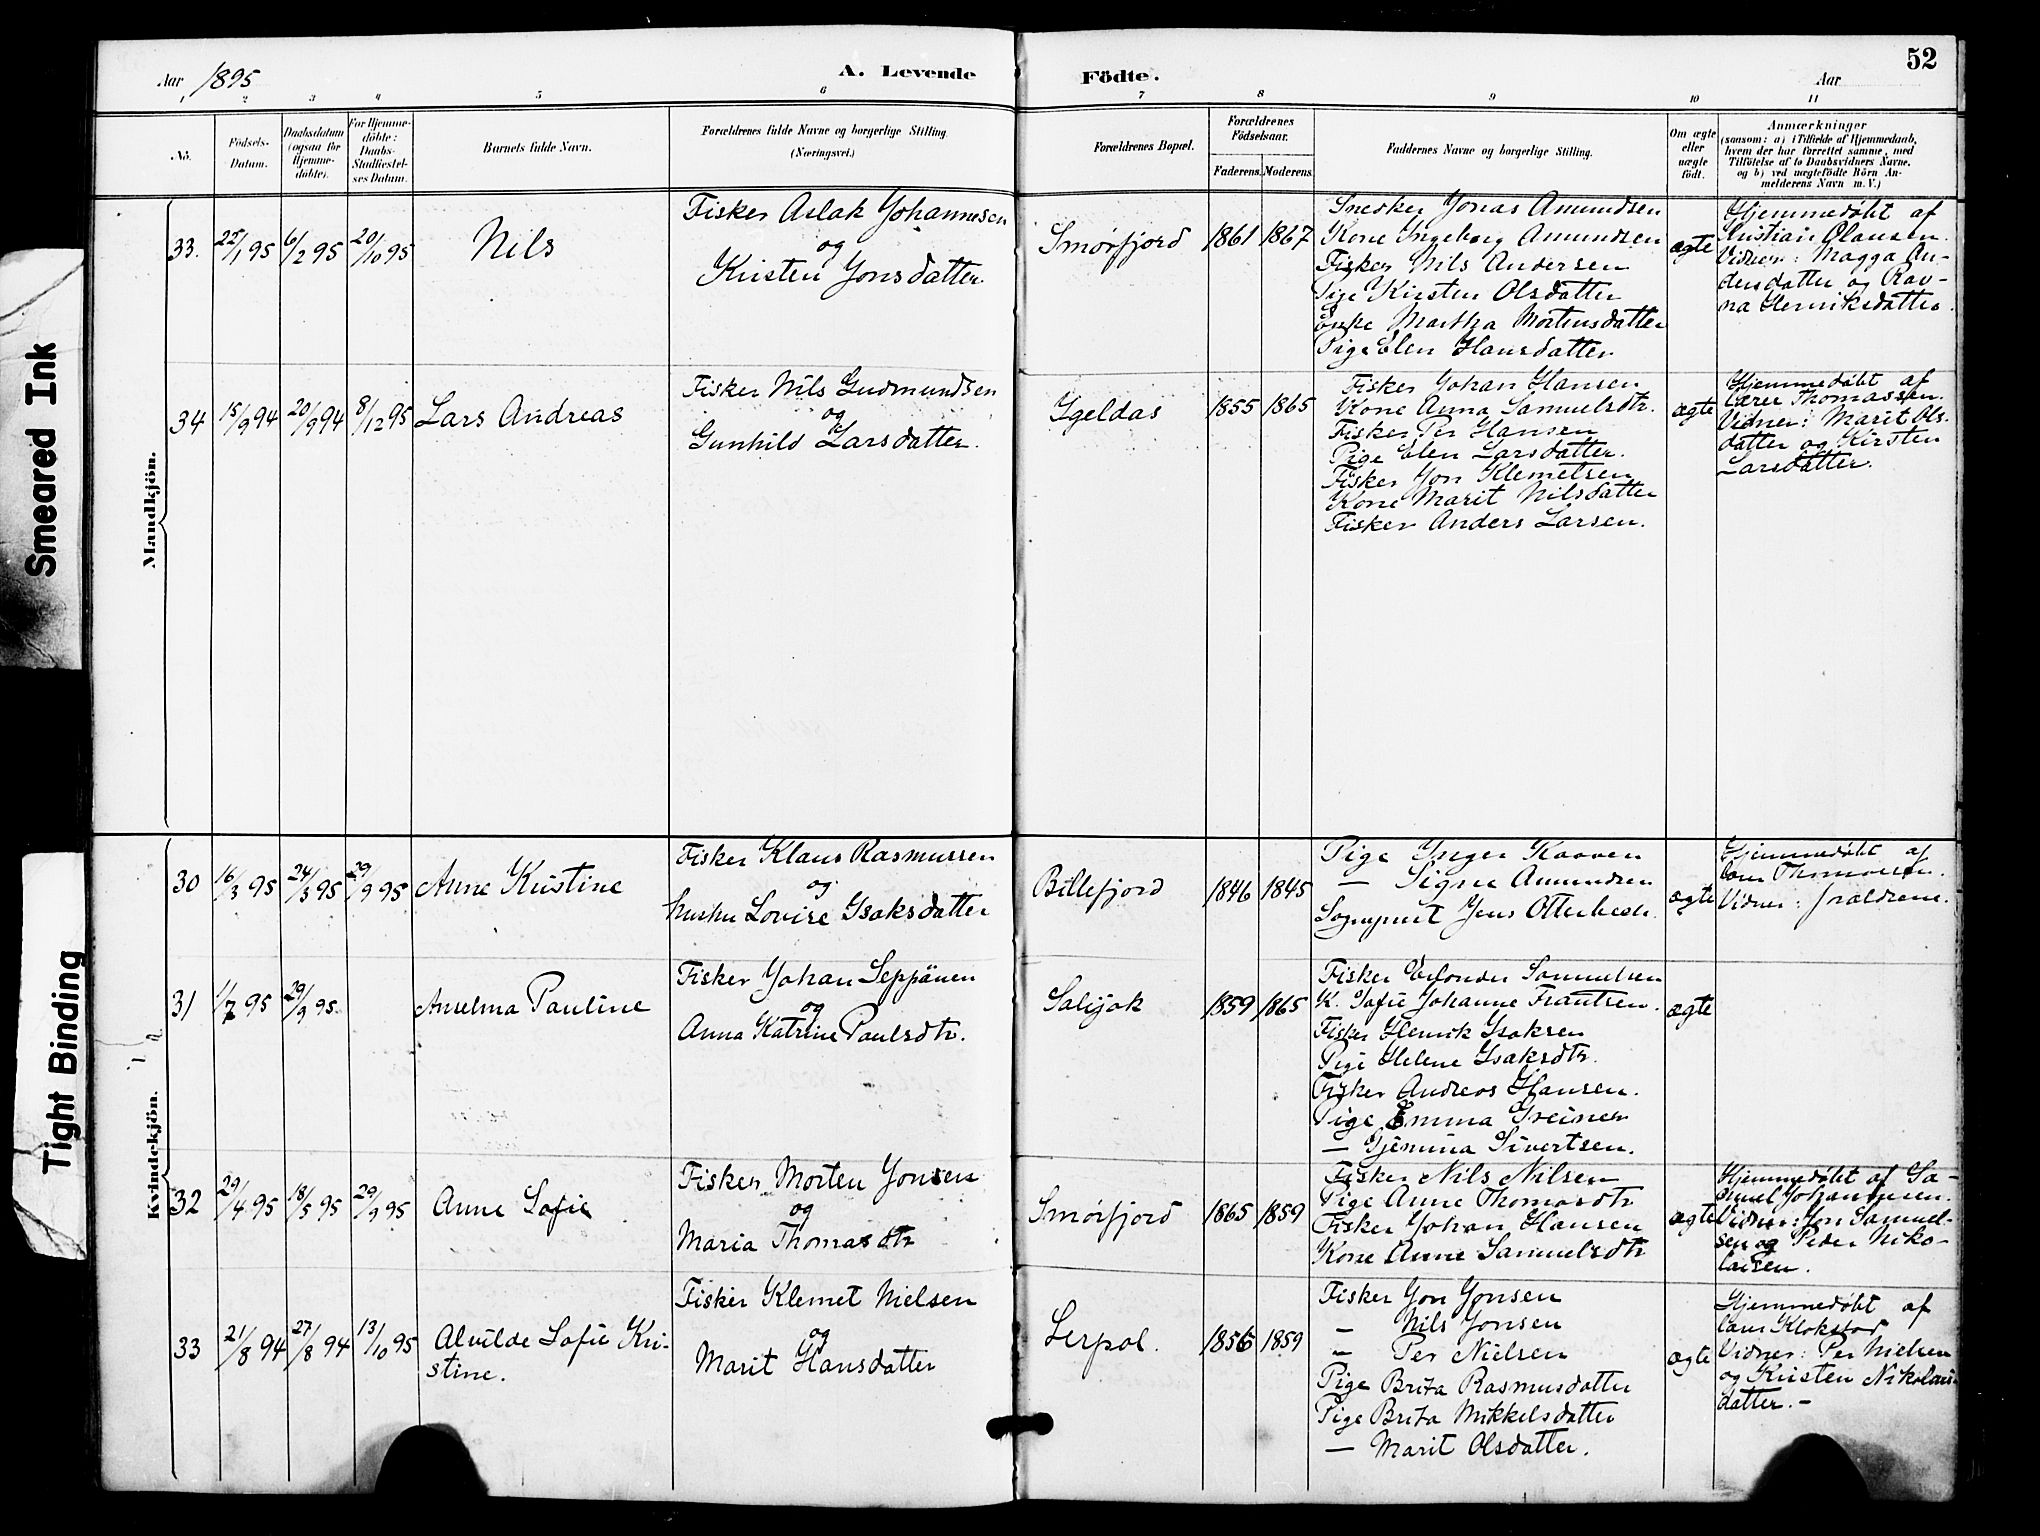 Smeared Ink
Tight Binding
Aar 1895
A. Levende
Födte.
Aar
52
1 2 3 4 5 6 7 8 9 10 11
No.
Födsels-
Datum.
Daabsdatum
(ogsaa for
Hjemme-
döbte).
For Hjemme-
döbte:
Daabs-
Stadfæstel-
ses Datum.
Barnets fulde Navn.
Forældrenes fulde Navne og borgerlige Stilling.
(Næringsvei.)
Forældrenes Bopæl.
Forældrenes
Födselsaar.
Faderens.
Moderens.
Faddernes Navne og borgerlige Stilling.
Om ægte
eller
uægte
födt.
Anmærkninger
(saasom: a) i Tilfælde af Hjemmedaab,
hvem der har forrettet samme, med
Tilföielse af to Daabsvidners Navne,
og b) ved uægtefödte Börn An-
melderens Navn m. V.)
Mandkjön.
33. 22/1 95 6/2 95 20/10 95 Nils
Fisker Aslak Johannesen
og
Kirsten Jonsdatter
Smørfjord 1861 1867
Snedker Jonas Amundsen
Kone Ingeborg Amundsen
Fisker Nils Andersen
Pige Kirsten Olsdatter
Enke Martha Mortensdatter
Pige Elen Hansdatter
ægte
Hjemmedøbt af
Kristian Olausen.
Vidner: Magga An-
dersdatter og Rav-
na Henriksdatter.
34 15/9 94 20/9 94 8/12 95 Lars Andreas
Fisker Nils Gudmundsen
og
Gunhild Larsdatter.
Igeldas 1855 1865
Fisker Johan Hansen
Kone Anna Samuelsdtr.
Fisker Per Hansen
Pige Elen Larsdatter.
Fisker Jon Klemetsen
Kone Marit Nilsdatter
Fisker Anders Larsen.
ægte
Hjemmedøbt af
Lærer Thomassen.
Vidner: Marit Ols-
datter og Kirsten
Larsdatter.
Kvindekjön.
30 16/3 95 24/3 95 29/9 95 Anne Kristine
Fisker Klaus Rasmussen
og
hustru Lovise Isaksdatter
Billefjord 1846 1845
Pige Inger Kaaven
— Signe Amundsen
Sogneprest Jens Otterbech.
ægte
Hjemmedøbt af
Thomassen.
Vidner: forældrene.
31 1/7 95 29/9 95 Anselma Pauline
Fisker Johan Seppänen
og
Anna Katrine Paulsdtr.
Salijok 1859 1865
Fisker Samuelsen
K. Sofie Johanne Frantsen.
Fisker Henrik Isaksen
Pige Helene Isaksdtr.
Fisker Andreas Hansen.
Pige Emma Greiner
— Sivertsen.
ægte
32 29/4 95 18/5 95 29/9 95 Anne Sofie
Fisker Morten Jonsen
og
Maria Thomasdtr
Smørfjord 1865 1859
Fisker Nils Nilsen
Pige Anne Thomasdtr
Fisker Johan Hansen
Kone Anne Samuelsdtr
ægte
Hjemmedøbt af Sa-
muel Johannesen.
Vidner: Jon Samuel-
sen og Peder Niko-
laisen.
33 21/8 94 27/8 94 13/10 95 Alvilde Sofie Kri-
stine.
Fisker Klemet Nielsen
og
Marit Hansdatter
Lerpol. 1856 1859
Fisker Jon Jonsen
— Nils Jonsen
— Per Nielsen
Pige Brita Rasmusdatter
Pige Brita Mikkelsdatter
— Marit Olsdatter.
ægte
Hjemmedøbt af
Klokstad
Vidner: Per Nielsen
og Kristen Nikolais-
datter. —